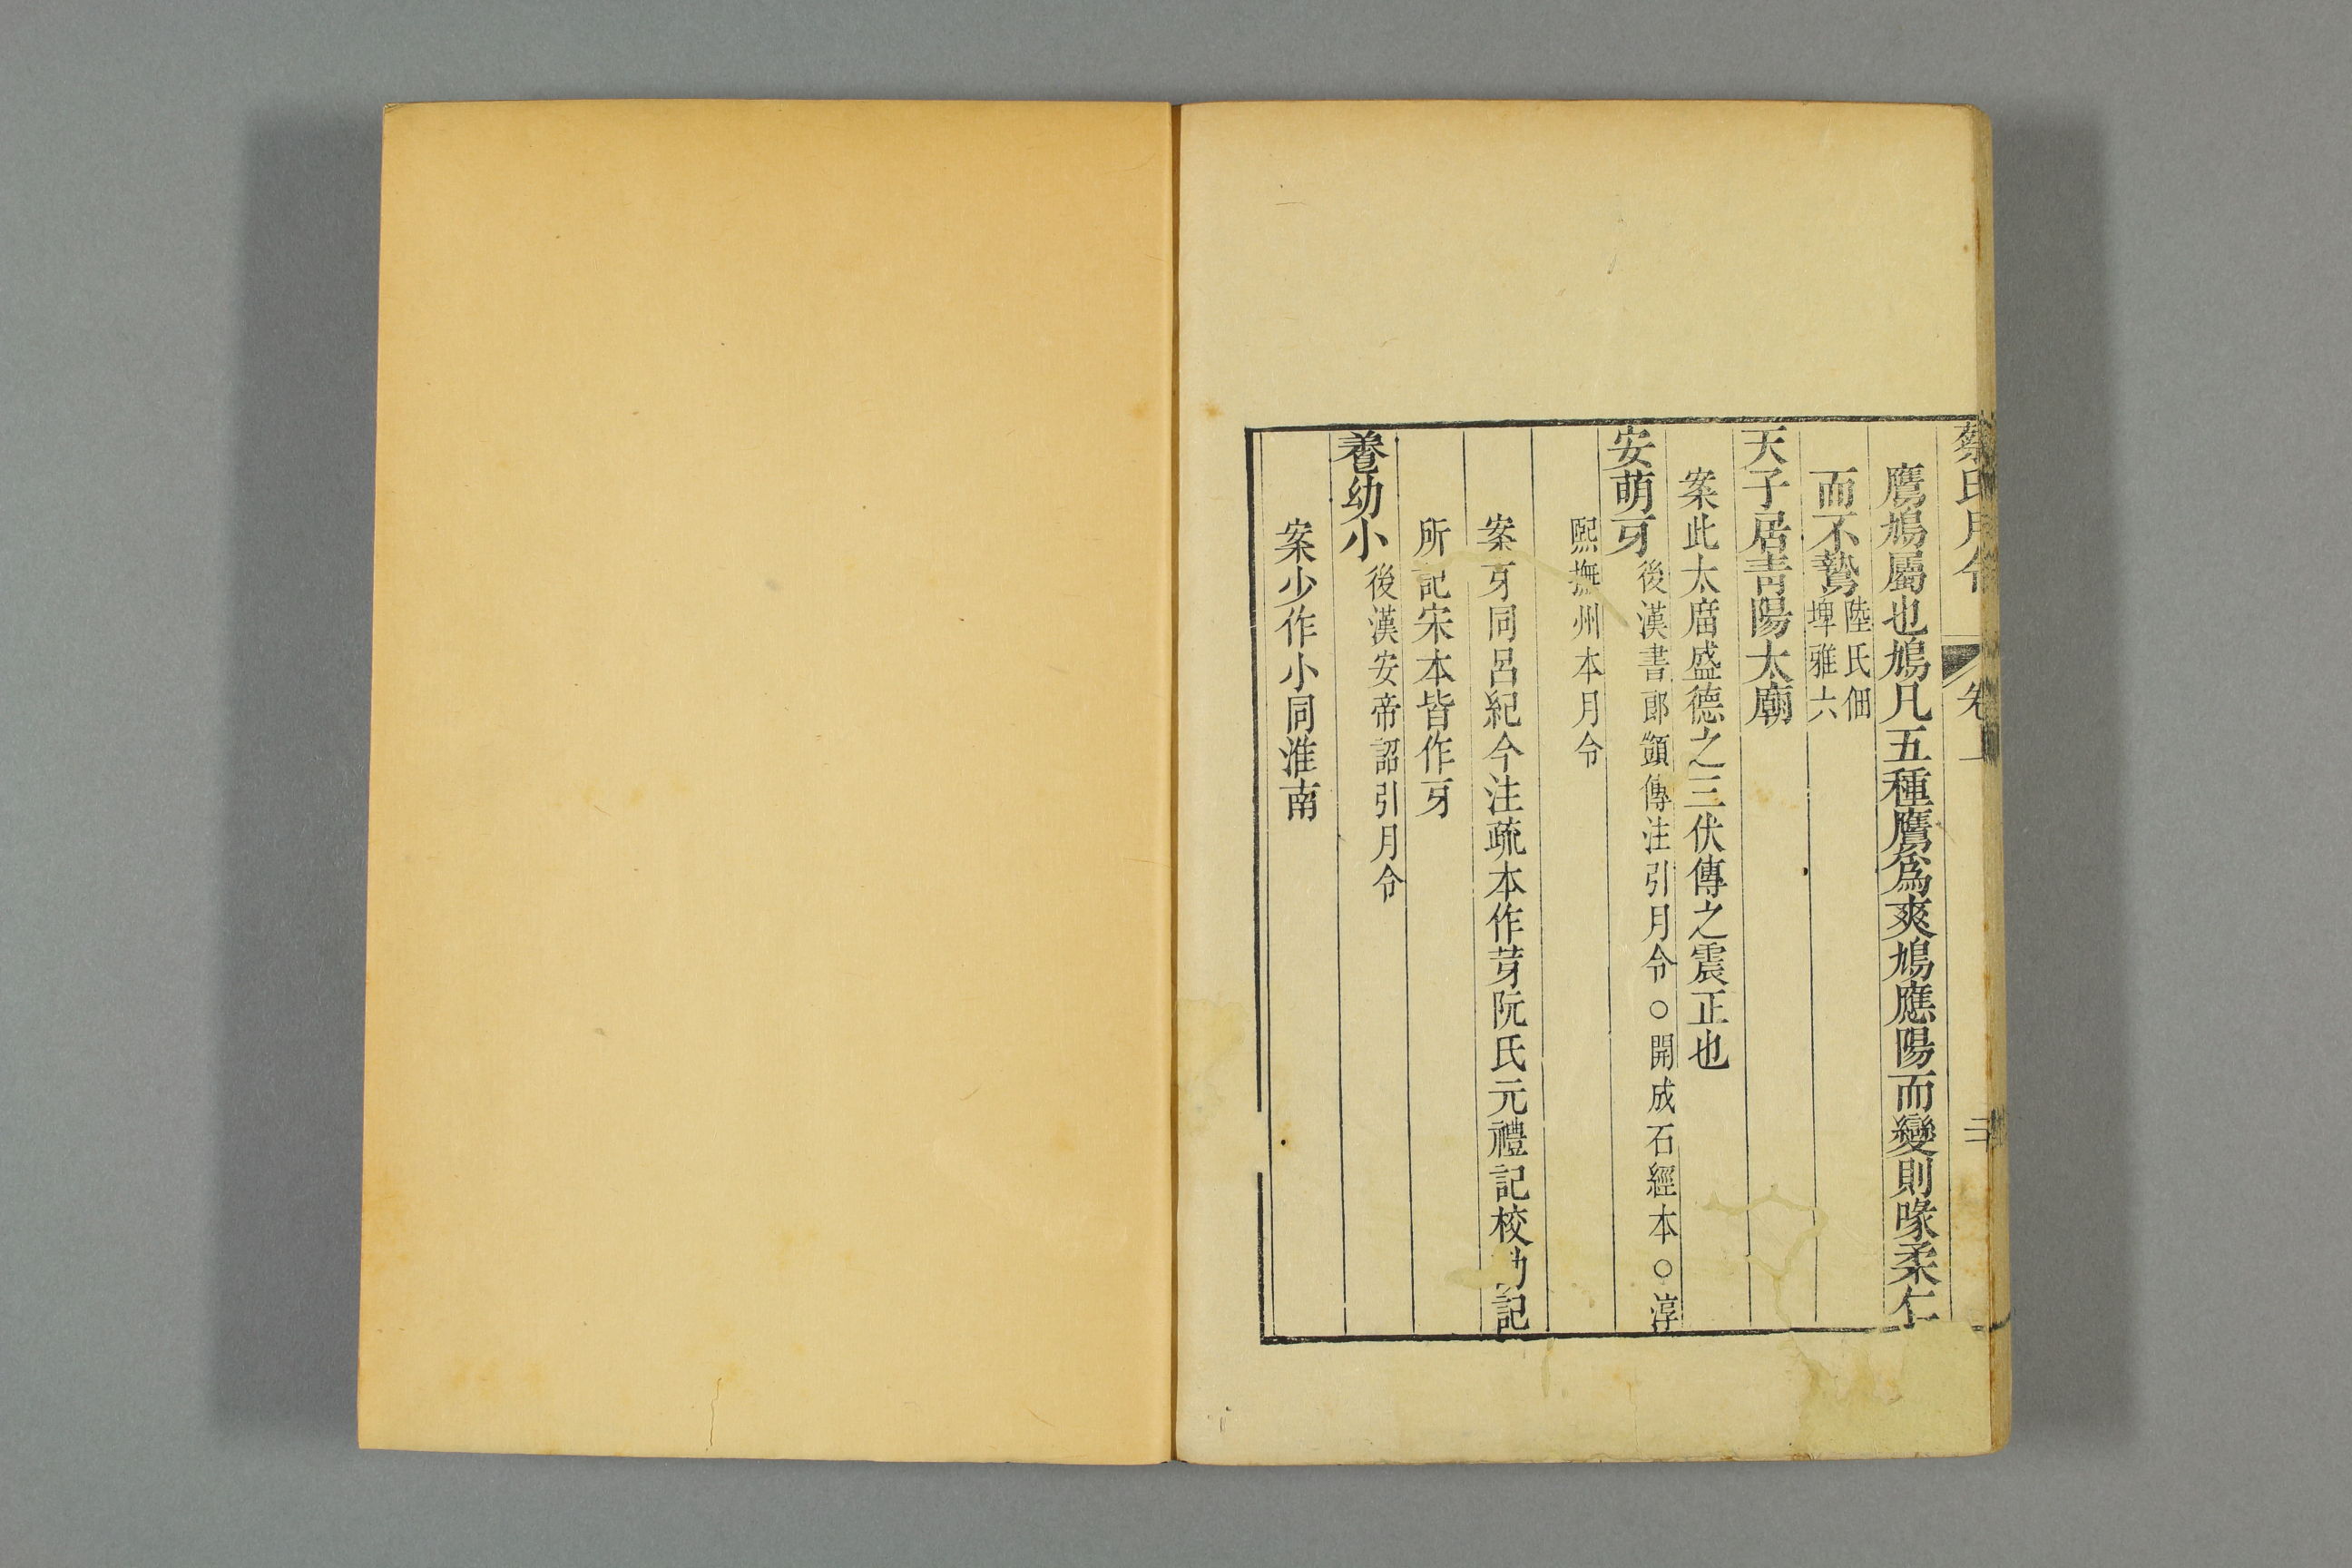 蔡氏月令 卷上 二
鷹鳩屬也鳩凡五種鷹爲爽鳩應陽而變則喙柔仁
而不鷙陸氏佃埤雅六
天子居青陽太廟
案此太𢈢盛德之三伏傳之震正也
安萌牙後漢書郎顗傳注引月令○開成石經本○淳
熙撫州本月令
案牙同呂紀今注疏本作芽阮氏元禮記校勘記
所記宋本皆作牙
養幼小後漢安帝詔引月令
案少作小同淮南